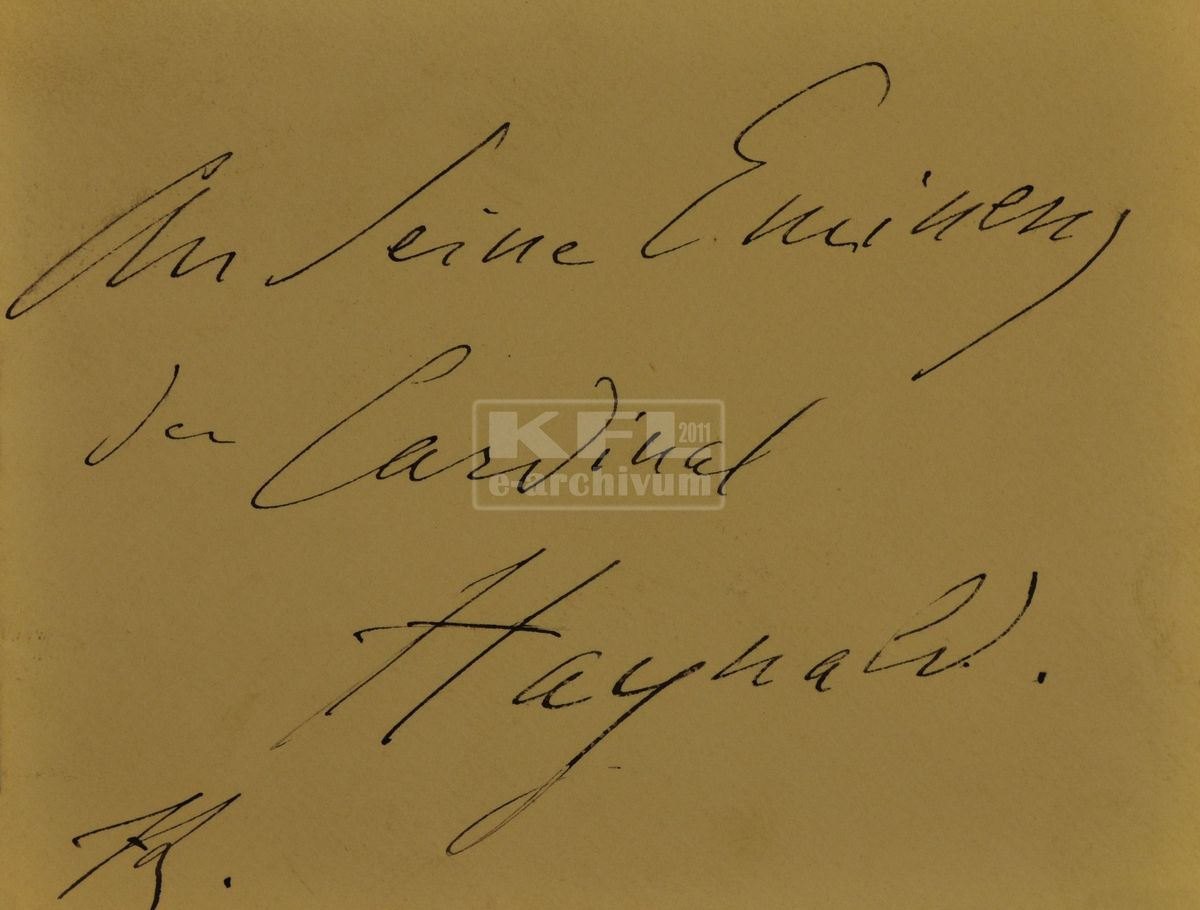 An Seine Eminenz
den Cardinal
KFL 2011
e-archivum
Haynald.